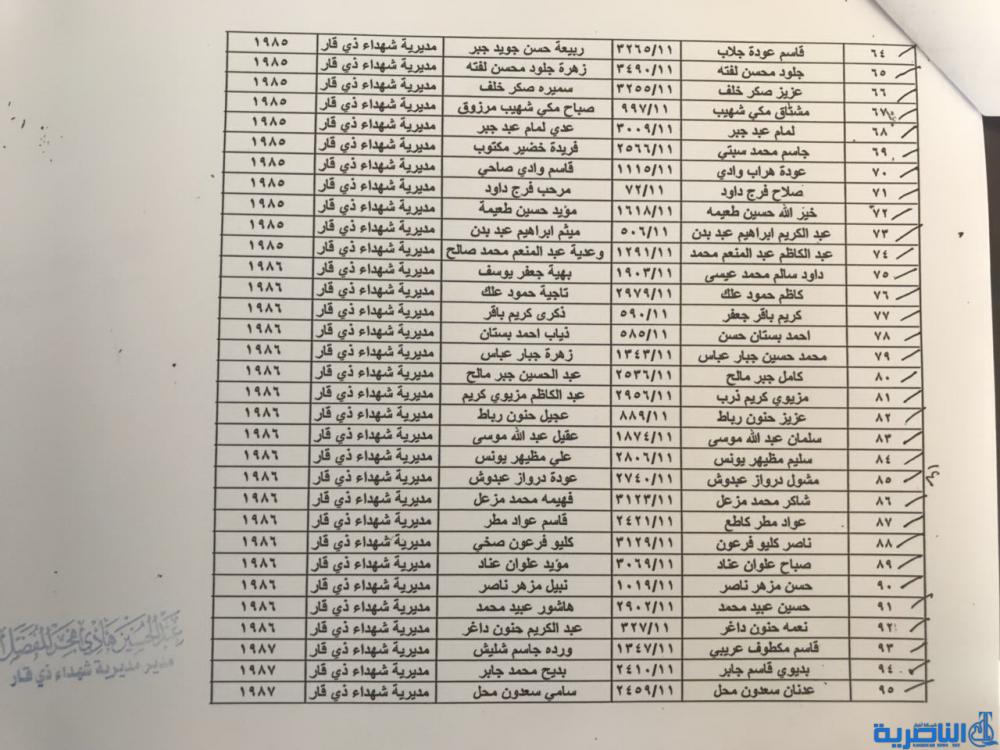 ٦٤ قاسم عودة جلاب ٣٢٦٥/١١ ربيعة حسن جويد جبر مديرية شهداء ذي قار ١٩٨٥
٦٥ جلود محسن لفته ٣٤٩٠/١١ زهرة جلود محسن لفته مديرية شهداء ذي قار ١٩٨٥
٦٦ عزيز صكر خلف ٣٢٥٥/١١ سميره صكر خلف مديرية شهداء ذي قار ١٩٨٥
٦٧ مشتاق مكي شهيب ٩٩٧/١١ صباح مكي شهيب مرزوق مديرية شهداء ذي قار ١٩٨٥
٦٨ لمام عبد جبر ٣٠٠٩/١١ عدي لمام عبد جبر مديرية شهداء ذي قار ١٩٨٥
٦٩ جاسم محمد سبتي ٢٥٦٦/١١ فريدة خضير مكتوب مديرية شهداء ذي قار ١٩٨٥
٧٠ عودة هراب وادي ١١١٥/١١ قاسم وادي صاحي مديرية شهداء ذي قار ١٩٨٥
٧١ صلاح فرج داود ٧٢/١١ مرحب فرج داود مديرية شهداء ذي قار ١٩٨٥
٧٢ خير الله حسين طعيمه ١٦١٨/١١ مؤيد حسين طعيمة مديرية شهداء ذي قار ١٩٨٥
٧٣ عبد الكريم ابراهيم عبد بدن ٥٠٦/١١ ميثم ابراهيم عبد بدن مديرية شهداء ذي قار ١٩٨٥
٧٤ عبد الكاظم عبد المنعم محمد ١٢٩١/١١ وعدية عبد المنعم محمد صالح مديرية شهداء ذي قار ١٩٨٥
٧٥ داود سالم محمد عيسى ١٩٠٣/١١ بهية جعفر يوسف مديرية شهداء ذي قار ١٩٨٦
٧٦ كاظم حمود علك ٢٩٧٩/١١ تاجية حمود علك مديرية شهداء ذي قار ١٩٨٦
٧٧ كريم باقر جعفر ٥٩٠/١١ ذكرى كريم باقر مديرية شهداء ذي قار ١٩٨٦
٧٨ احمد بستان حسن ٥٨٥/١١ ذياب احمد بستان مديرية شهداء ذي قار ١٩٨٦
٧٩ محمد حسين جبار عباس ١٣٤٣/١١ زهرة جبار عباس مديرية شهداء ذي قار ١٩٨٦
٨٠ كامل جبر مالح ٢٥٣٦/١١ عبد الحسين جبر مالح مديرية شهداء ذي قار ١٩٨٦
٨١ مزيوي كريم ذرب ٢٩٥٦/١١ عبد الكاظم مزيوي كريم مديرية شهداء ذي قار ١٩٨٦
٨٢ عزيز حنون رباط ٨٨٩/١١ عجيل حنون رباط مديرية شهداء ذي قار ١٩٨٦
٨٣ سلمان عبد الله موسى ١٨٧٤/١١ عقيل عبد الله موسى مديرية شهداء ذي قار ١٩٨٦
٨٤ سليم مظيهر يونس ٢٨٠٦/١١ علي مظيهر يونس مديرية شهداء ذي قار ١٩٨٦
٨٥ مشول درواز عبدوش ٢٧٤٠/١١ عودة درواز عبدوش مديرية شهداء ذي قار ١٩٨٦
٨٦ شاكر محمد مزعل ٣١٢٣/١١ فهيمه محمد مزعل مديرية شهداء ذي قار ١٩٨٦
٨٧ عواد مطر كاطع ٢٤٢١/١١ قاسم عواد مطر مديرية شهداء ذي قار ١٩٨٦
٨٨ ناصر كليو فرعون ٣١٢٩/١١ كليو فرعون صخي مديرية شهداء ذي قار ١٩٨٦
٨٩ صباح علوان عناد ٣٠٦٩/١١ مؤيد علوان عناد مديرية شهداء ذي قار ١٩٨٦
٩٠ حسن مزهر ناصر ١٠١٩/١١ نبيل مزهر ناصر مديرية شهداء ذي قار ١٩٨٦
٩١ حسين عبيد محمد ٢٩٠٢/١١ هاشور عبيد محمد مديرية شهداء ذي قار ١٩٨٦
٩٢ نعمه حنون داغر ٣٢٧/١١ عبد الكريم حنون داغر مديرية شهداء ذي قار ١٩٨٦
٩٣ قاسم مكطوف عريبي ١٣٤٧/١١ ورده جاسم شليش مديرية شهداء ذي قار ١٩٨٧
٩٤ بديوي قاسم جابر ٢٤١٠/١١ بديح محمد جابر مديرية شهداء ذي قار ١٩٨٧
٩٥ عدنان سعدون محل ٢٤٥٩/١١ سامي سعدون محل مديرية شهداء ذي قار ١٩٨٧
عبد الحسين هادي
مدير مديرية شهداء ذي قار
شبكة اخبار
الناصرية